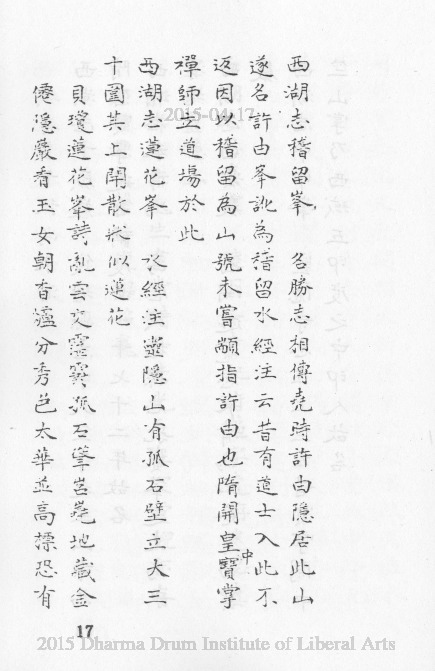 西湖志稽留峯 名勝志相傳堯時許由隱居此山
遂名許由峯訛為稽留水經注云昔有道士入此不
返因以稽留為山號未嘗顓指許由也隋開皇中寶掌
禪師立道場於此
西湖志蓮花峯 水經注靈隱山有孤石壁立大三
十圍其上開散狀似蓮花
貝瓊蓮花峯詩亂雲文靈窦孤石擎岧嶤地藏金
僊隱嚴看玉女朝香爐分秀色太華並高標恐有
17
2015-04-17
2015 Dharma Drum Institute of Liberal Arts